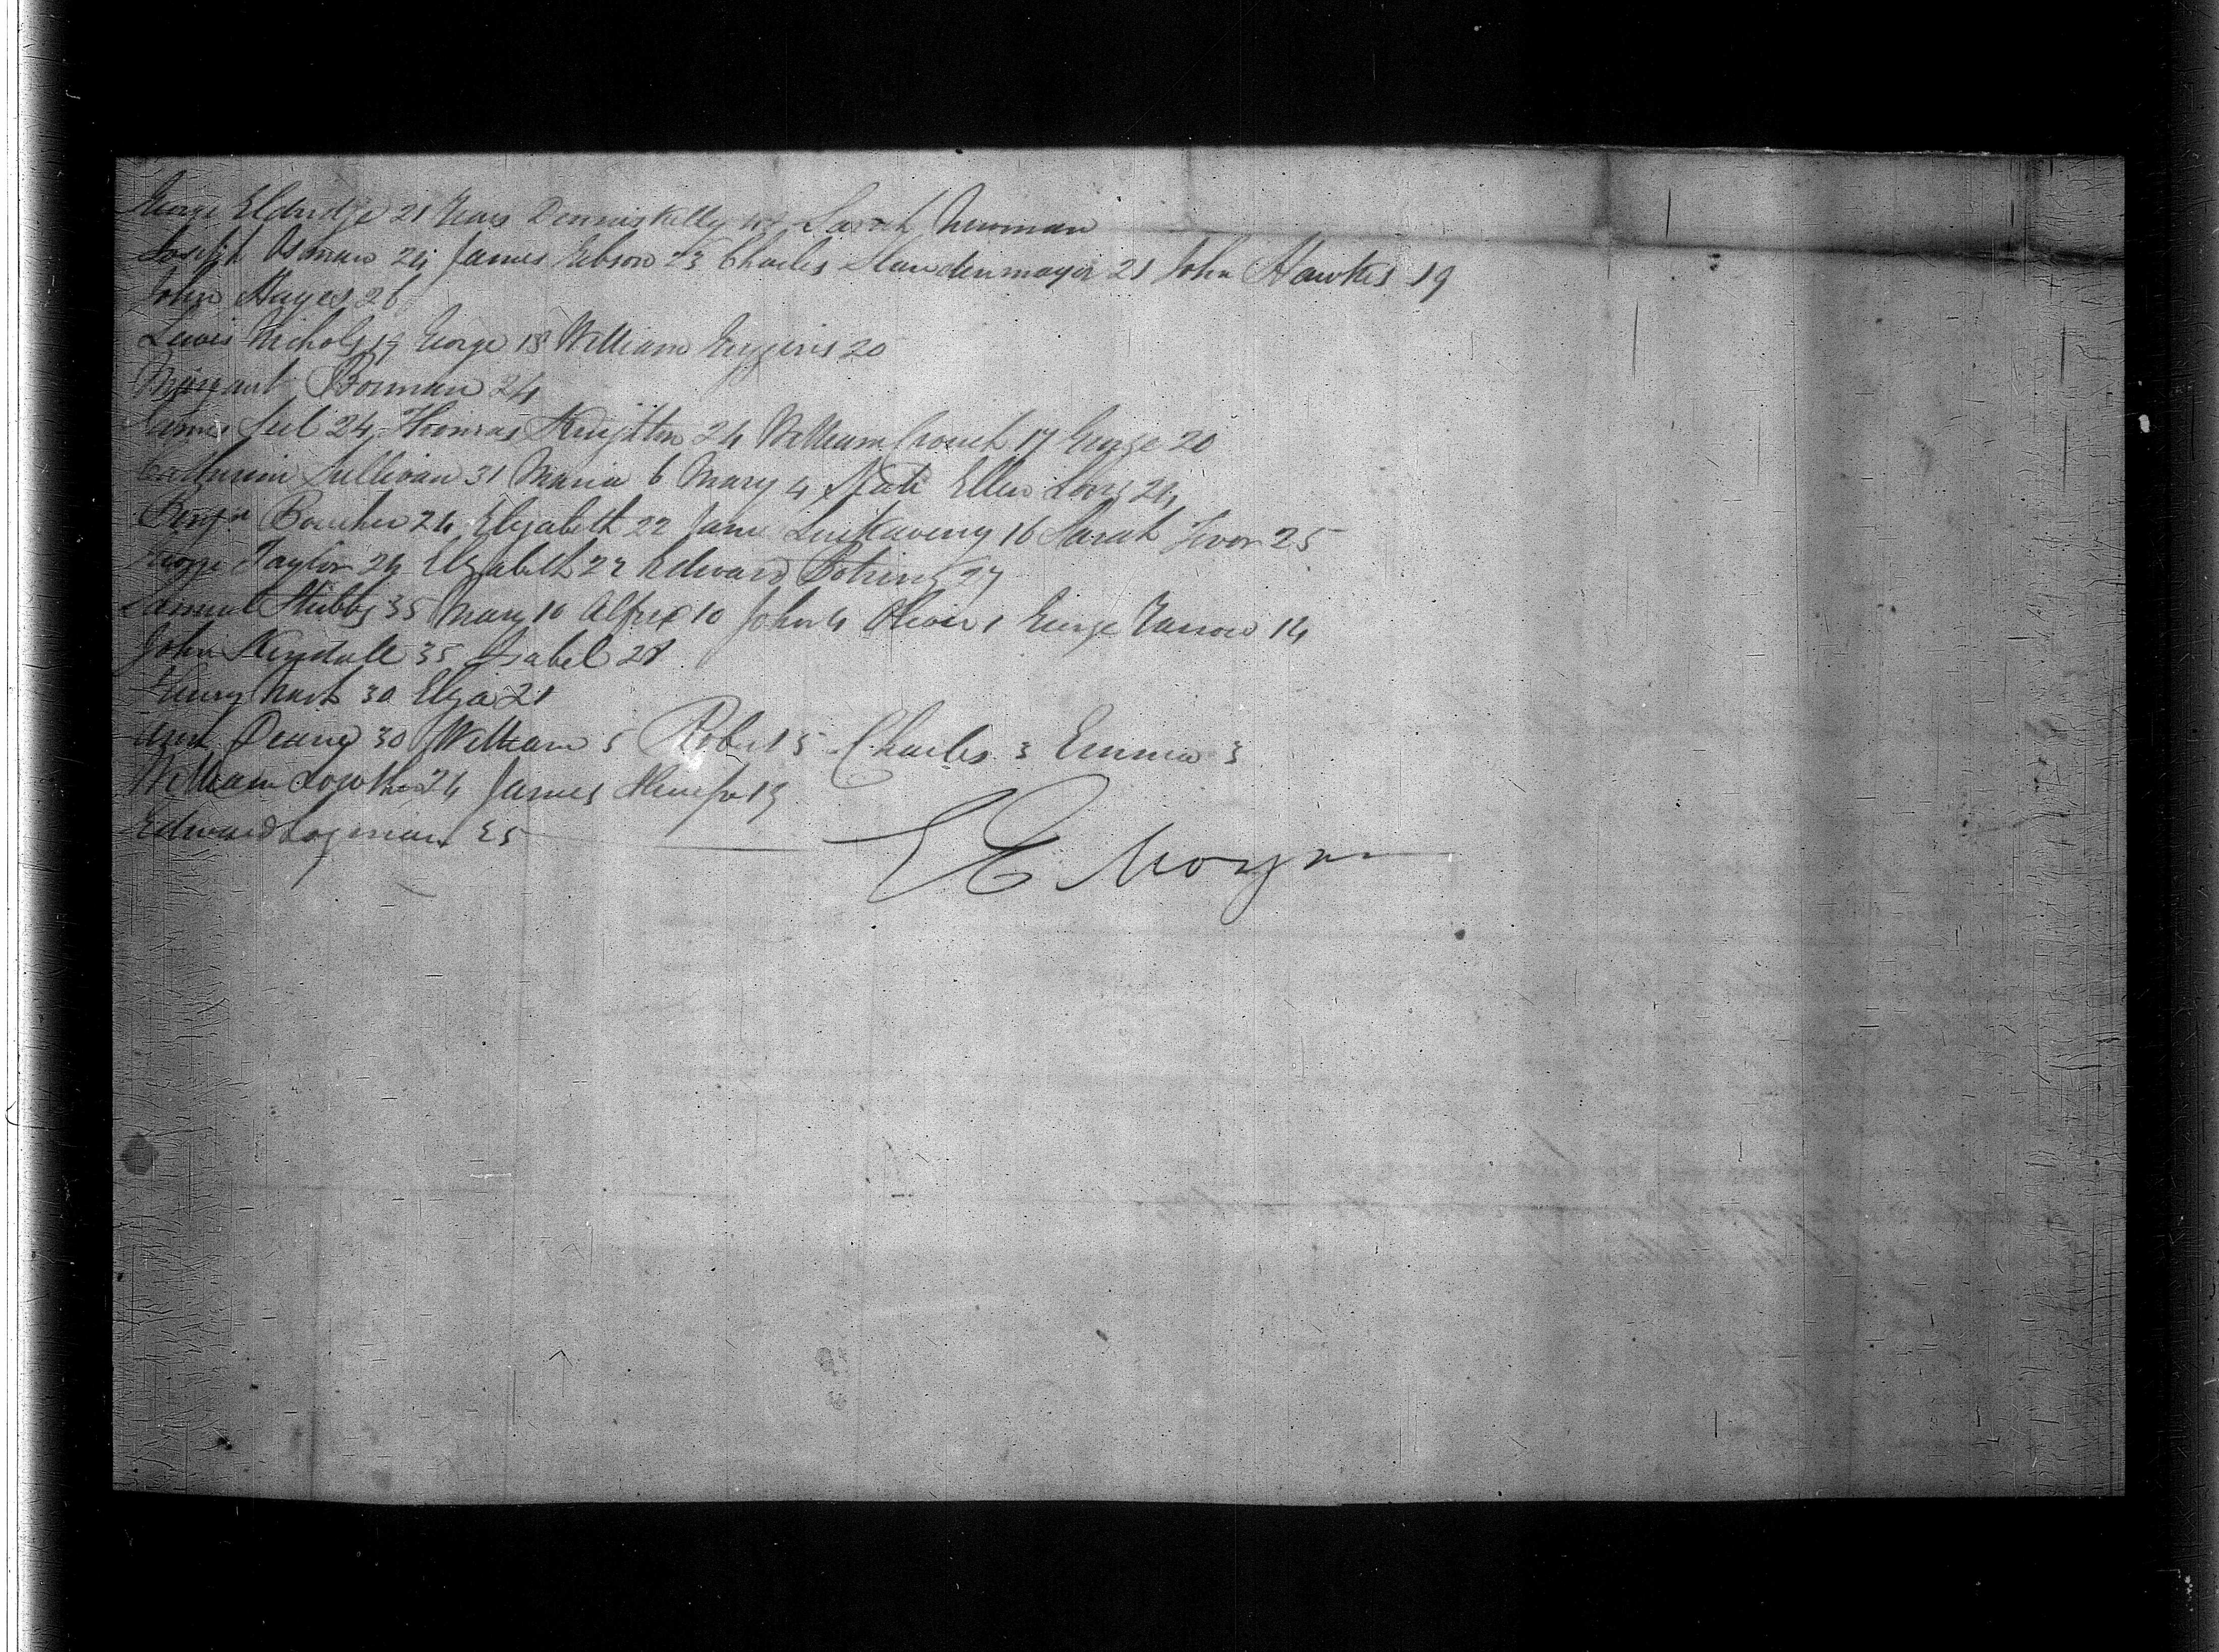 George Eldridge 21 Years Dennis Kelly Sarah Newman
Joseph Osman 24 James Gibson 23 Charles Slaudenmayer 21 John Hawkes 19
John Hayes 26
Lewis Nichols 19 George 18 William Higgins 20
Margaret Bonman 24
James 24 Thomas Knightton 24 William Crouch 17 George 20
Catherine Sullivan 31 Maria 6 Mary 4 Kate Ellen 24
Benjn Boucher 24 Elizabeth 22 Jane 16 Sarah 25
George Taylor 24 Elizabeth 22 Edward 27
Samuel Stubbs 35 Mary 10 Alfred 10 John 4 Oliver 1 George Farrow 14
John Kendall 35 Isabel 28
Henry 30 Eliza 21
Deany 30 William 5 Robert 5 Charles 3 Emma 3
William Lowther 24 James 19
Edward Logman 25
E E Morgan